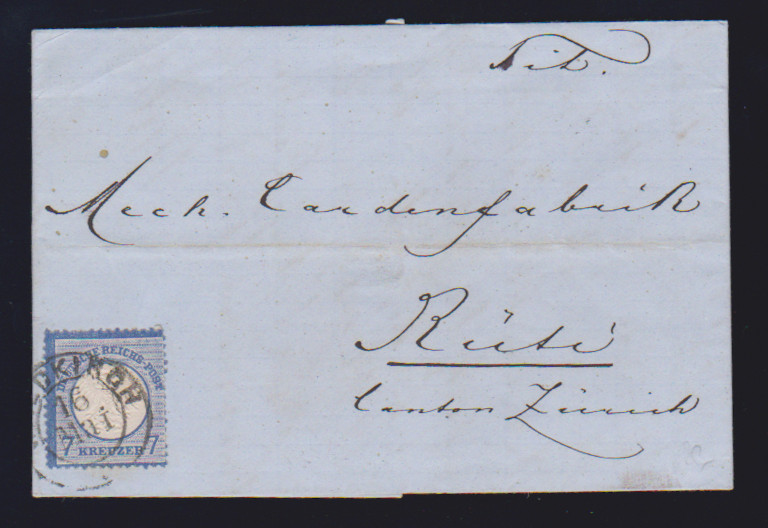 Tit.
Mech. Cardenfabrik
Rüti
Canton Zürich
DEUTSCHE REICHS-POST
7 KREUZER 7
16